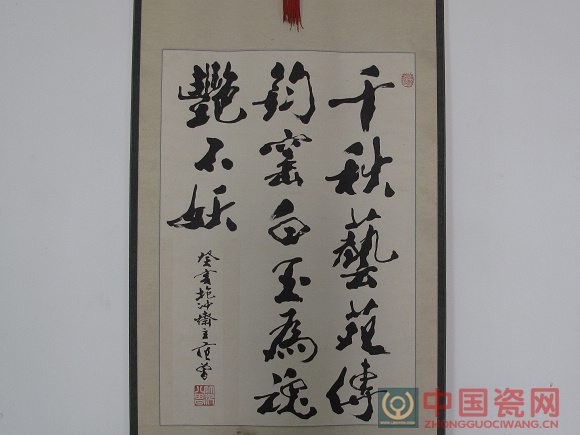 千秋藝苑傳
鈞窯白玉為魂
艷不妖
癸亥抱沖齋主范曾
中国瓷网
ZHONGGUOCIWANG.CN